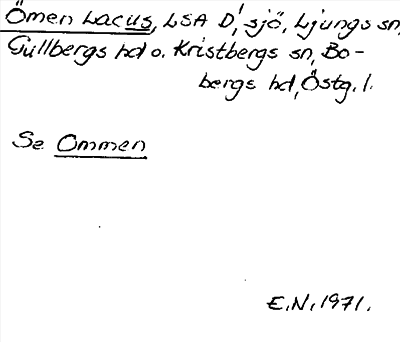 Ömen Lacus, LSA D', sjö, Ljungs sn,
Gullbergs hd o. Kristbergs sn, Bo-
bergs hd, Östg. l.
Se Ommen
E.N. 1971.